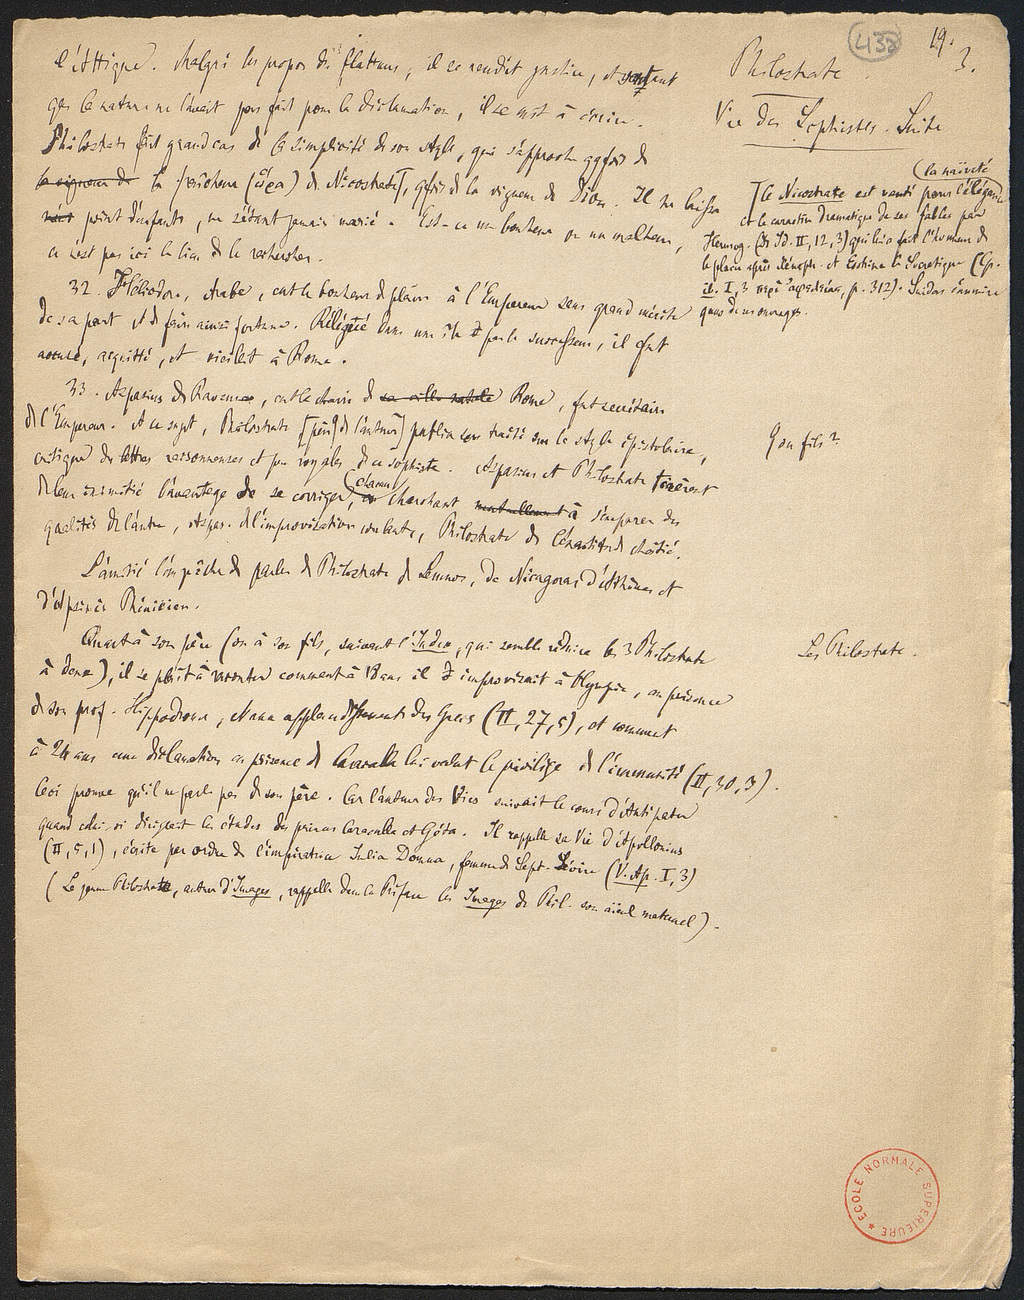 438
19.
3.
Philostrate.
Vie des Sophistes. Suite
l'Attique. Malgré les propos des flatteurs, il se rendit justice, et sentant
que la nature ne l'avait pas fait pour la déclamation, il se mit à écrire.
Philostrate fait grand cas de la simplicité de son style, qui s'approche qqfois de
la vigueur de la fraîcheur (ὥρα) de Nicostrate, qqfois de la vigueur de Dion. Il ne laissa
point d'enfants, ne s'étant jamais marié. Est-ce un bonheur ou un malheur,
ce n'est pas ici le lieu de le rechercher.
(la naïveté
Le Nicostrate est vanté pour l'élégance
et le caractère dramatique de ses fables par
Hermog. (II, 12, 3) qui lui a fait l'honneur de
le placer après Xénoph. et Eschine le Socratique (
I, 3 περὶ ἀφελείας, p. 312). Suidas énumère
ques de ses ouvrages.
32. Héliodore, Arabe, eut le bonheur de plaire à l'Empereur sans grand mérite
de sa part et de faire ainsi fortune. Relégué dans une île par le successeur, il fut
accusé, acquitté, et vieillit à Rome.
33. Aspasius de Ravenne, eut la chaire de sa ville natale Rome, fut secrétaire
de l'Empereur. A ce sujet, Philostrate [père de l'auteur] publia un traité sur le style épistolaire,
Son fils?
critique des lettres et peu royales de ce sophiste. Aspasius et Philostrate tirèrent
de leur inimitié l'avantage de se corriger, chacun cherchant mutuellement à s'emparer des
qualités de l'autre, Aspas. de l'improvisation coulante, Philostrate de l'exactitude châtiée.
L'amitié l'empêche de parler de Philostrate de Lemnos, de Nicagoras d'Athènes et
d'Apsinès Phénicien.
Quant à son père (ou à son fils, suivant l'Index, qui semble réduire les 3 Philostrate
Les Philostrate.
à deux), il se plaît à raconter comment à 18 ans il improvisait à Olympie, en présence
de son prof. Hippodrome, et aux applaudissements des Grecs (II, 27, 5), et comment
à 24 ans une déclamation en présence de Caracalla lui valut le privilège de l'immunité (II, 30, 3).
Ceci prouve qu'il ne parle pas de son père. Car l'auteur des Vies suivait le cours d'Antipater
quand celui-ci dirigeait les études des princes Caracalla et Géta. Il rappelle sa Vie d'Apollonius
(II, 5, 1), écrite par ordre de l'impératrice Julia Domna, femme de Sept. Sévère (V. Ap. I, 3)
(Le jeune Philostrate, auteur d'Images, rappelle dans la Préface les Images de Phil. son aïeul maternel).
ECOLE NORMALE SUPERIEURE